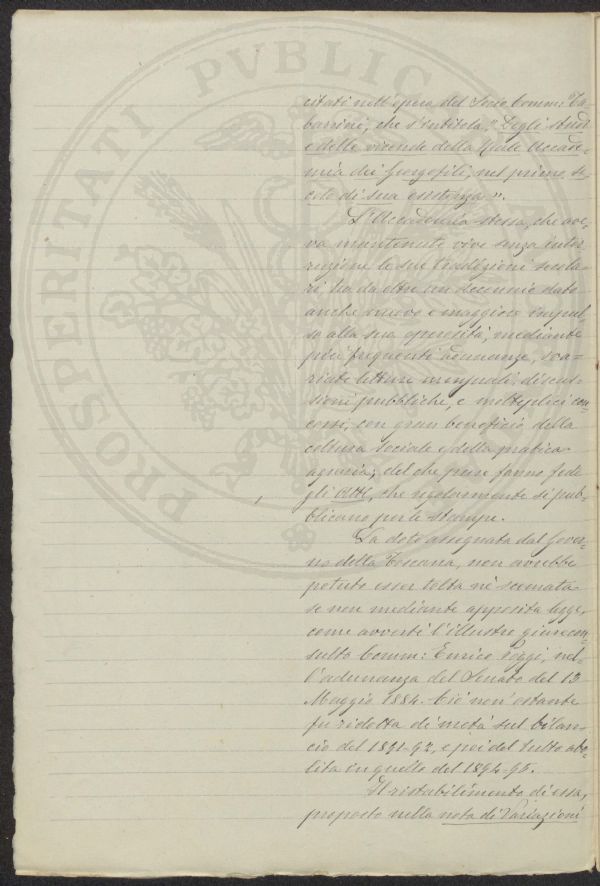 PROSPERITATI PVBLIC
citati nell'opera del Socio Comm: Ta-
barrini, che s'intitola: "Degli Studi
e delle vicende della Reale Accade-
mia dei Georgofili, nel primo se-
colo di sua esistenza".
L'Accademia stessa, che ave-
va mantenute vive senza inter-
ruzione le sue tradizioni secola-
ri ha da oltre un decennio dato
anche nuovo e maggiore impul-
so alla sua operosità, mediante
più frequenti adunanze, sva-
riate letture mensuali, discus-
sioni pubbliche, e molteplici con-
corsi, con gran beneficio della
coltura sociale e della pratica
agraria; del che pure fanno fede
gli Atti, che regolarmente si pub-
blicano per le stampe.
La dote assegnata dal Gover-
no della Toscana, non avrebbe
potuto esser tolta nè scemata
se non mediante apposita legge,
come avvertì l'illustre giurecon-
sulto Comm: Enrico Poggi, nel-
l'adunanza del Senato del 13
Maggio 1884. Ciò non ostante
fu ridotta di metà sul bilan-
cio del 1891-92, e poi del tutto abo-
lita in quello del 1894-95.
Il ristabilimento di essa,
proposto nella nota di Variazioni